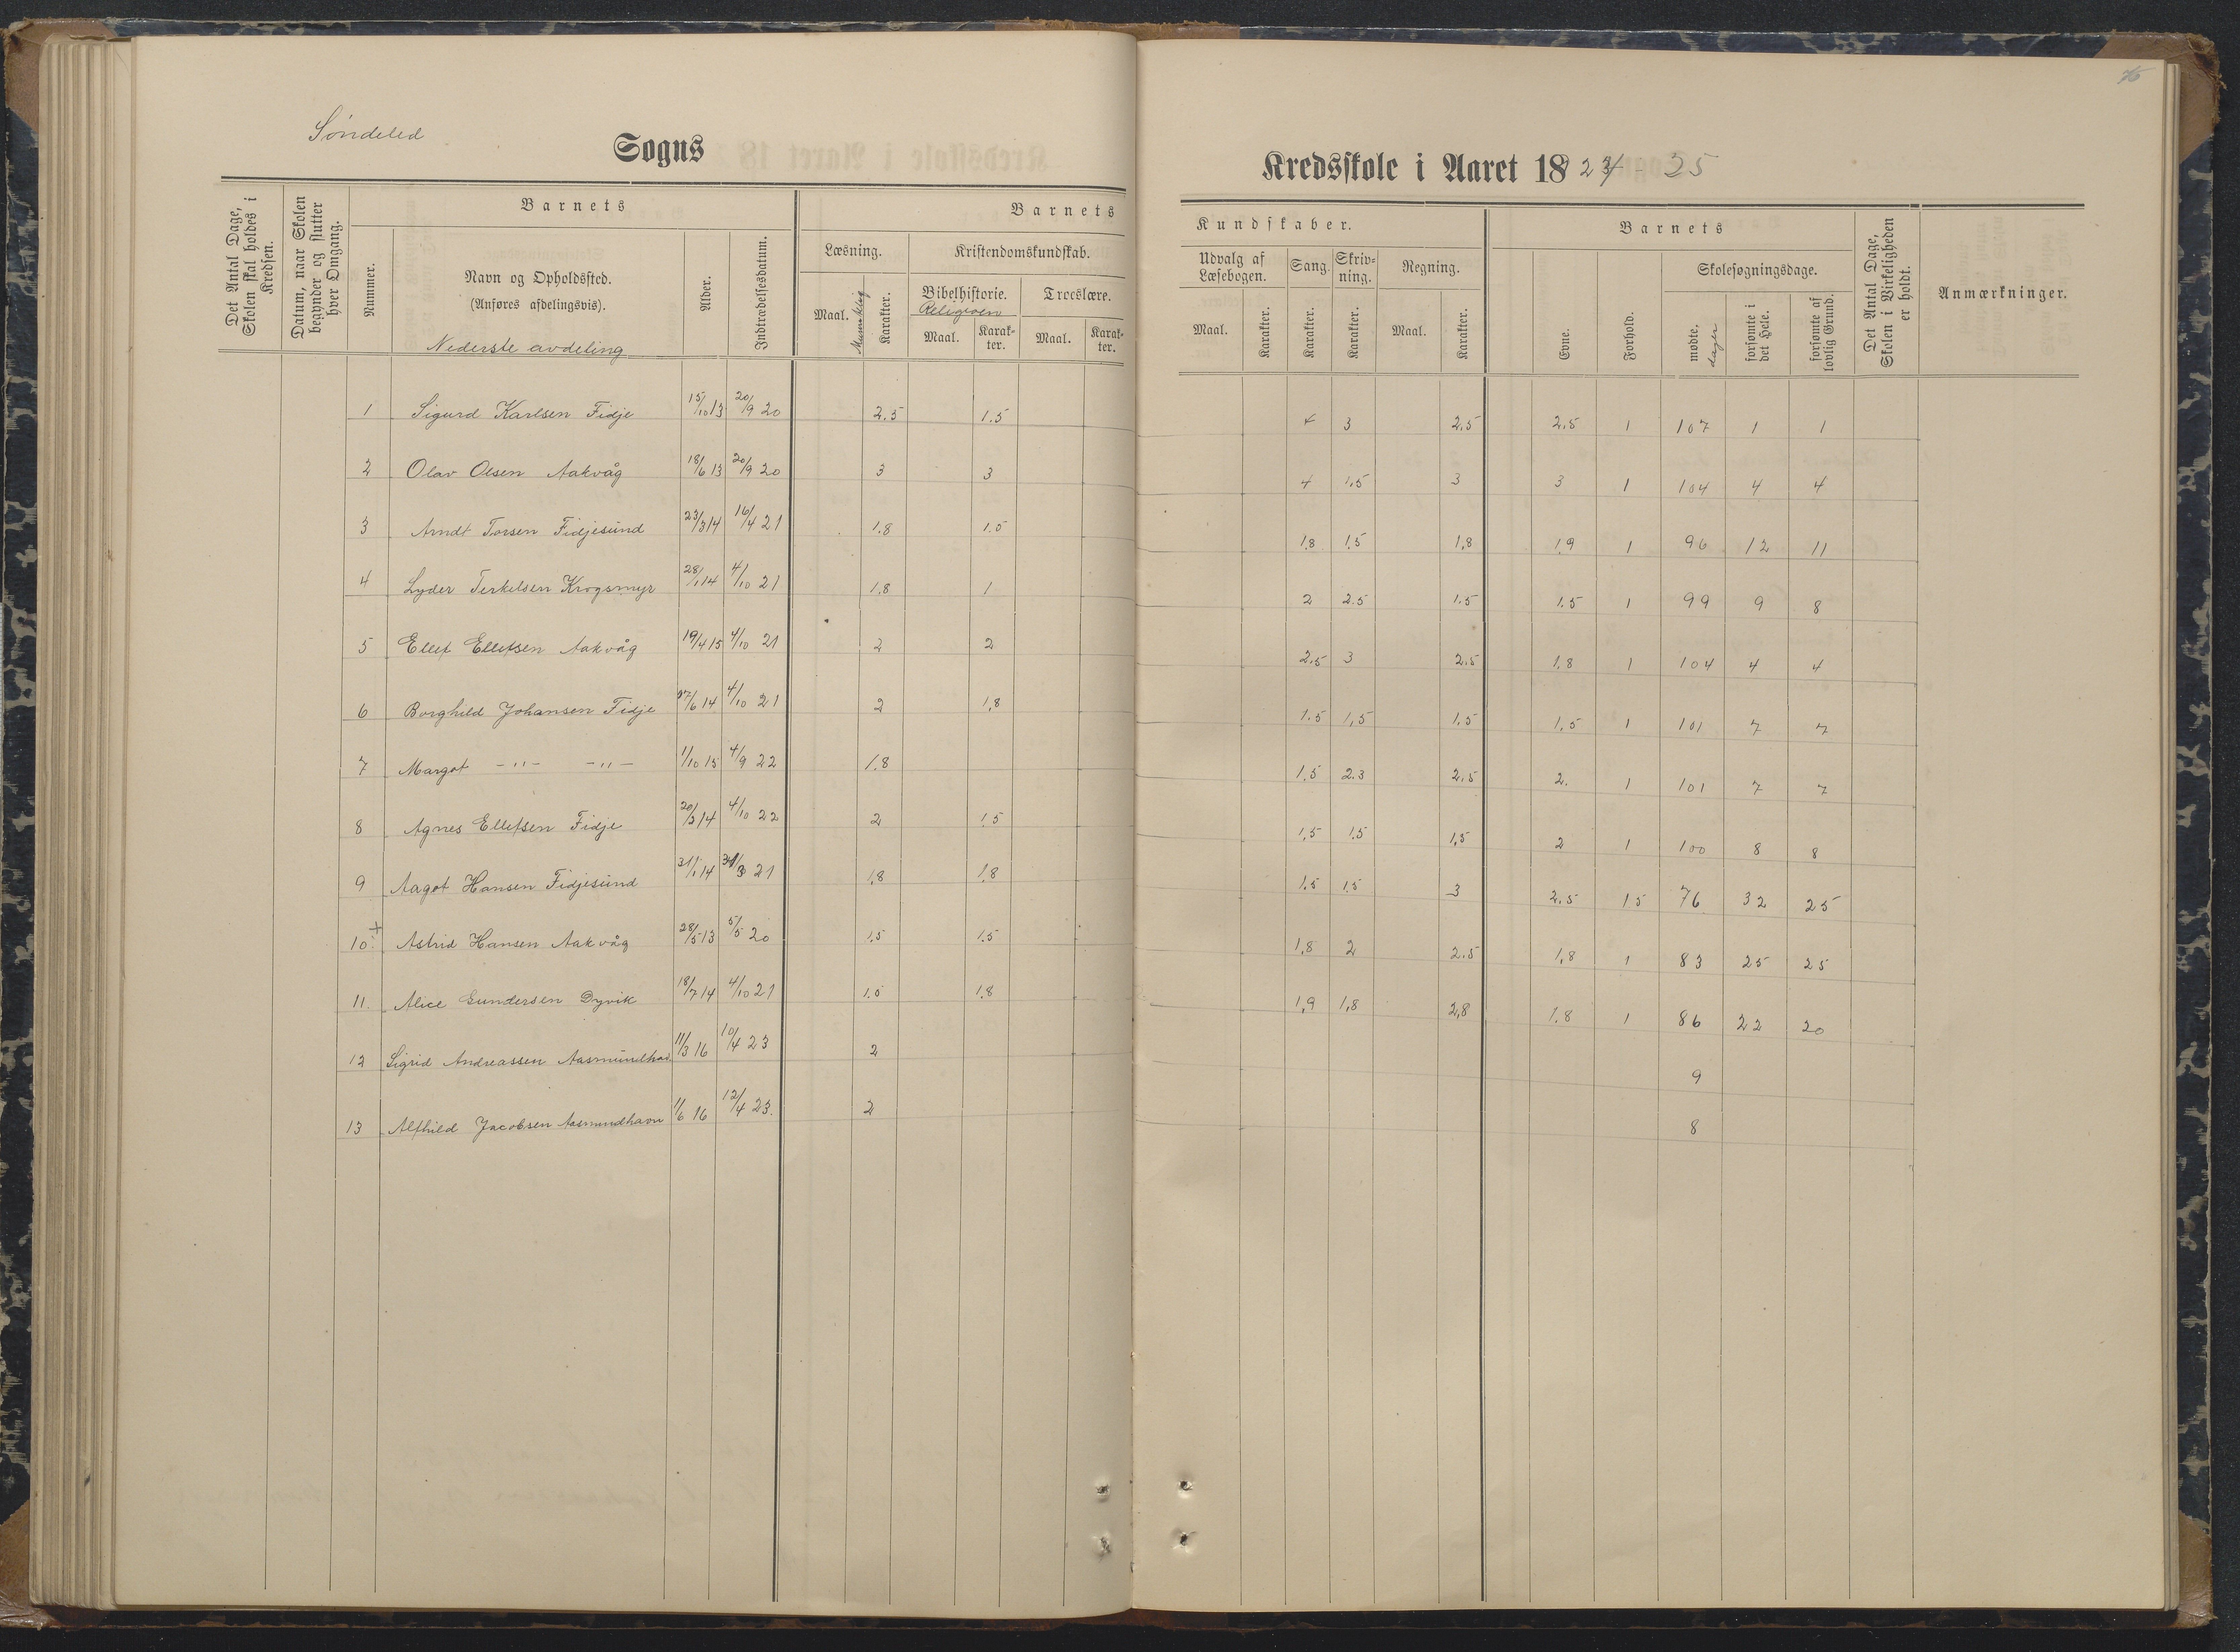 Søndeled
Sogns
Kredsskole i Aaret 18 24 - 25
Det Antal Dage, Skolen skal holdes i Kredsen.
Datum, naar Skolen begynder og slutter hver Omgang.
Barnets
Nummer.
Navn og Opholdssted.
(Anføres afdelingsvis).
Nederste avdeling
Alder.
Indtrædelsesdatum.
Barnets
Læsning.
Maal.
Mundtlig
Karakter.
Kristendomskundskab.
Bibelhistorie.
Religion
Maal.
Karakter.
Troeslære.
Maal.
Karakter.
Kundskaber.
Udvalg af Læsebogen.
Maal.
Karakter.
Sang.
Karakter.
Skrivning.
Karakter.
Regning.
Maal.
Karakter.
Barnets
Evne.
Forhold.
Skolesøgningsdage.
mødte.
dager
forsømte i det Hele.
forsømte af lovlig Grund.
Det Antal Dage, Skolen i Virkeligheden er holdt.
Anmærkninger.
1 Sigurd Karlsen Fidje 15/10 13 20/9 20 2.5 1.5 4 3 2.5 2.5 1 107 1 1
2 Olav Olsen Aakvåg 18/6 13 20/9 20 3 3 4 1.5 3 3 1 104 4 4
3 Arndt Torsen Fidjesund 23/3 14 16/4 21 1.8 1.5 1.8 1.5 1,8 1.9 1 96 12 11
4 Lyder Terkelsen Krogsmyr 28/1 14 4/10 21 1.8 1 2 2.5 1.5 1.5 1 99 9 8
5 Ellef Ellefsen Aakvåg 19/4 15 4/10 21 2 2 2.5 3 2.5 1.8 1 104 4 4
6 Borghild Johansen Fidje 27/6 14 4/10 21 2 1,8 1.5 1,5 1.5 1,5 1 101 7 7
7 Margot -"- -"- 1/10 15 4/9 22 1.8 1.5 2.3 2.5 2. 1 101 7 7
8 Agnes Ellefsen Fidje 20/3 14 4/10 22 2 1.5 1,5 1.5 1,5 2 1 100 8 8
9 Aagot Hansen Fidjesund 31/1 14 21 1,8 1.8 1.5 1.5 3 2.5 1.5 76 32 25
10. + Astrid Hansen Aakvåg 28/5 13 5/5 20 1.5 1.5 1,8 2 2.5 1,8 1 83 25 25
11. Alice Gundersen Dyvik 18/7 14 4/10 21 1.5 1.8 1,9 1,8 2,8 1.8 1 86 22 20
12 Sigrid Andreassen Aasmundhav 11/3 16 10/4 23 2 9
13 Alfhild Jacobsen Aasmundhavn 1/6 16 12/4 23. 2 8